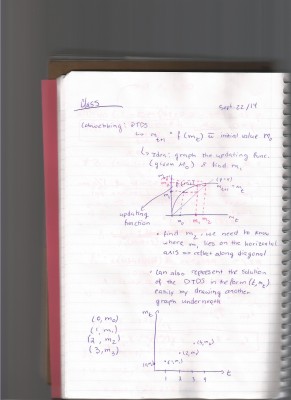 Class
Sept. 22/14
Cobwebbing: DTDS
↳ m_t+1 = f(m_t) w initial value m_0
↳ Idea: graph the updating func.
(given m_0) & find m_1
m_t+1 = m_t
m_1
m_0 m_1 m_2 m_t
updating
function
• find m_2, we need to know
where m_1 lies on the horizontal
axis
along diagonal
• can also represent the solution
of the DTDS in the form (t, m_t)
easily by drawing another
graph underneath
m_t
(0, m_0)
(1, m_1)
(2, m_2)
(3, m_3)
1 2 3 4 t